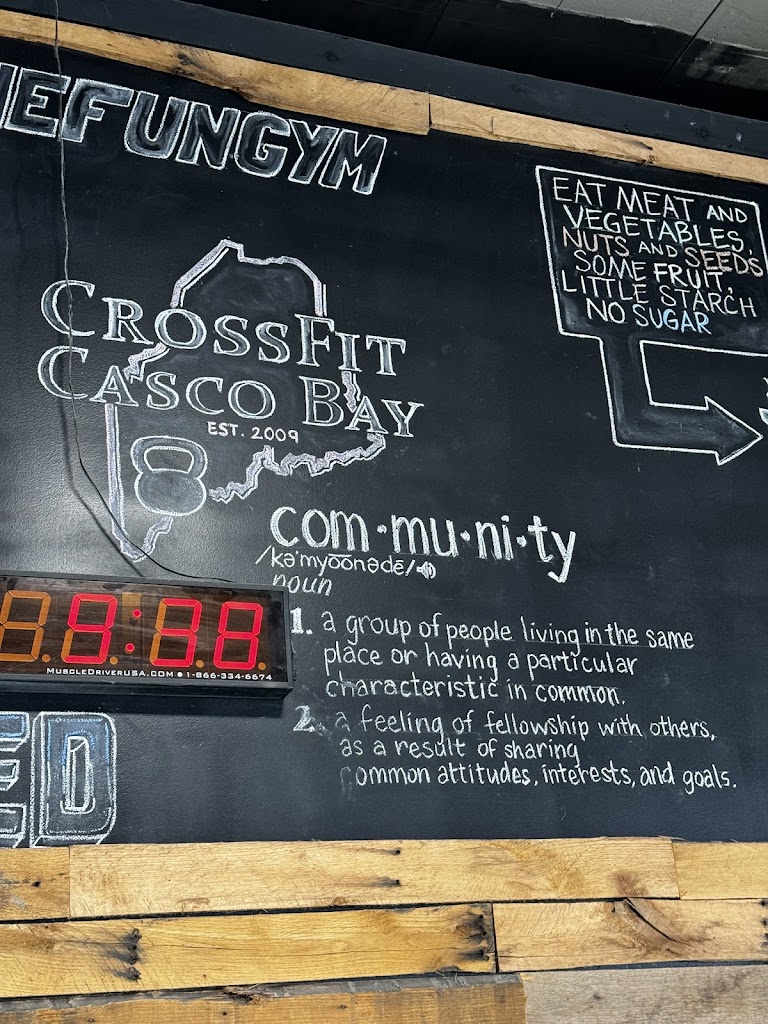 EFUNGYM
CROSSFIT
CASCO BAY
EST. 2009
EAT MEAT AND
VEGETABLES,
NUTS AND SEEDS
SOME FRUIT,
LITTLE STARCH
NO SUGAR
com·mu·ni·ty
/kə'myo͞onədē/
noun
1. a group of people living in the same
place or having a particular
characteristic in common.
2. a feeling of fellowship with others,
as a result of sharing
common attitudes, interests, and goals.
MUSCLEDRIVERUSA.COM ● 1-866-334-6674
ED